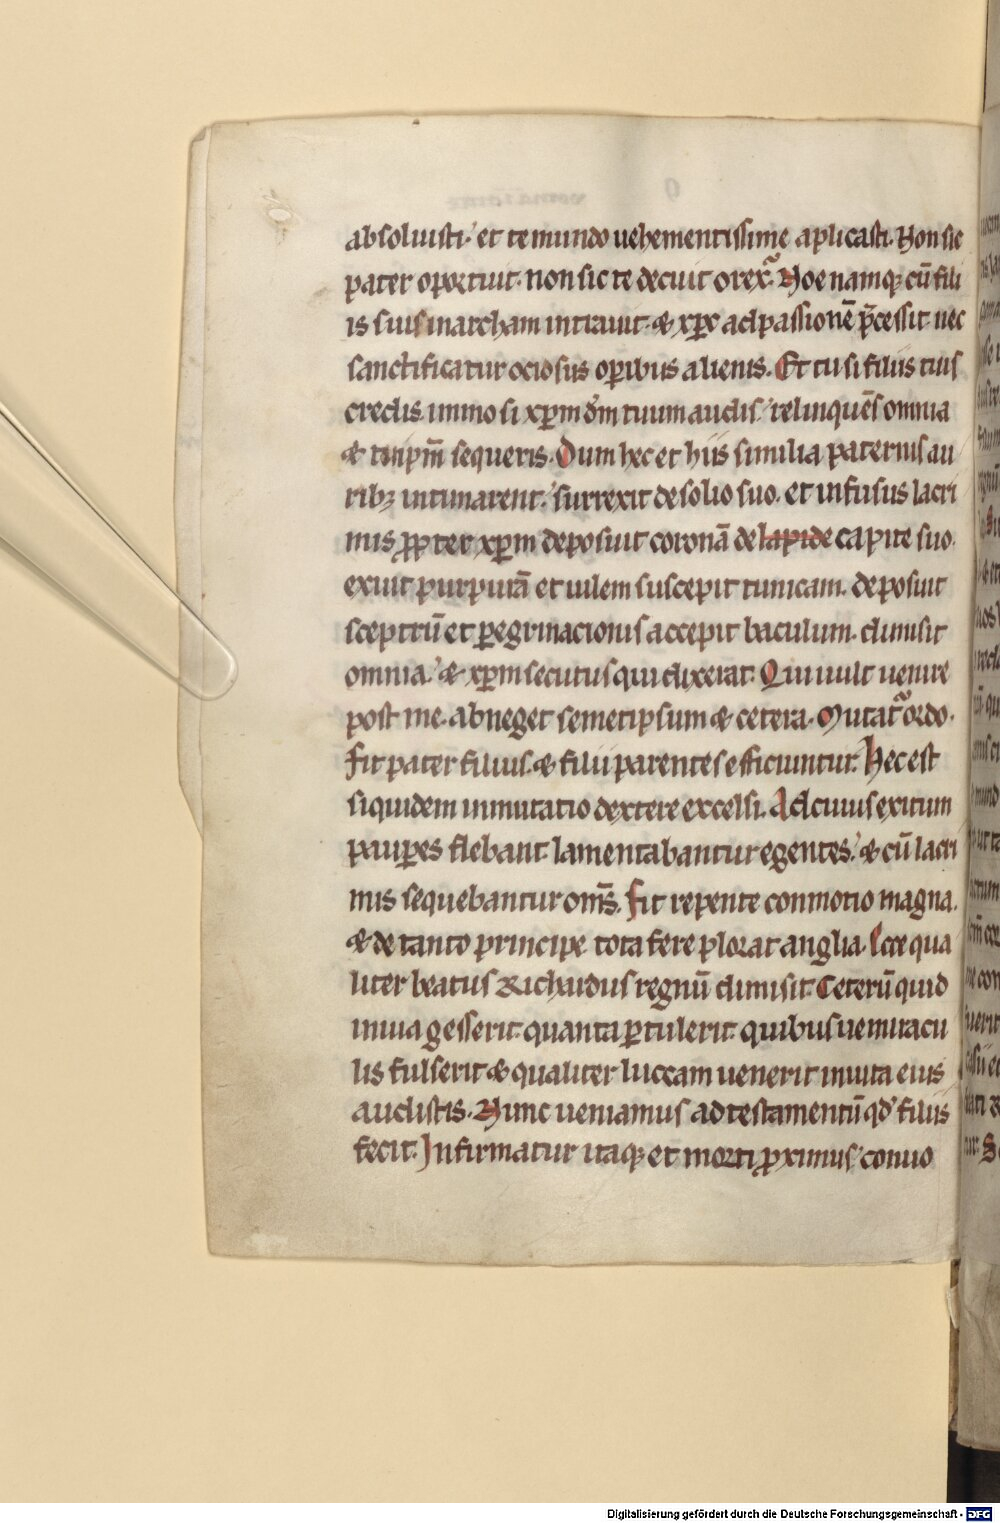 absoluisti. et te mundo uehementissime aplicasti. Non sic
pater oportuit. non sic te decuit o rex. Noe namq; cū fili
is suis in archam intrauit. & xp̄c ad passionē p̄cessit. nec
sanctificatur ociosus op̄ibus alienis. Et tu si filiis tuis
credis. immo si xp̄m dn̄m tuum audis. relinquēs omnia
& tuip̄m̄ sequeris. Dum hec et hiis similia paternis au
ribꝫ intimarent. surrexit de solio suo. et infusus lacri
mis ꝓpter xp̄m deposuit coronā de lapide capite suo.
exuit purpurā et uilem suscepit tunicam. deposuit
sceptrū et ꝑegrinacionis accepit baculum. dimisit
omnia. & xp̄m secutus qui dixerat. Qui uult uenire
post me. abneget semetipsum & cetera. Mutat᷑ ordo.
fit pater filius. & filii parentes efficiuntur. Hec est
siquidem inmutatio dextere excelsi. Ad cuius exitum
pauꝑes flebant. lamentabantur egentes. & cū lacri
mis sequebantur om̄s. Fit repente conmotio magna.
& de tanto principe tota fere plorat anglia. Ecce qua
liter beatus Richardus regnū dimisit. Ceterū quid
in uia gesserit. quanta ꝑtulerit. quibus ue miracu
lis fulserit & qualiter luccam uenerit in uita eius
audistis. Nunc ueniamus ad testamentū qd̓ filiis
fecit. Infirmatur itaq; et morti ꝓximus conuo
Digitalisierung gefördert durch die Deutsche Forschungsgemeinschaft - DFG